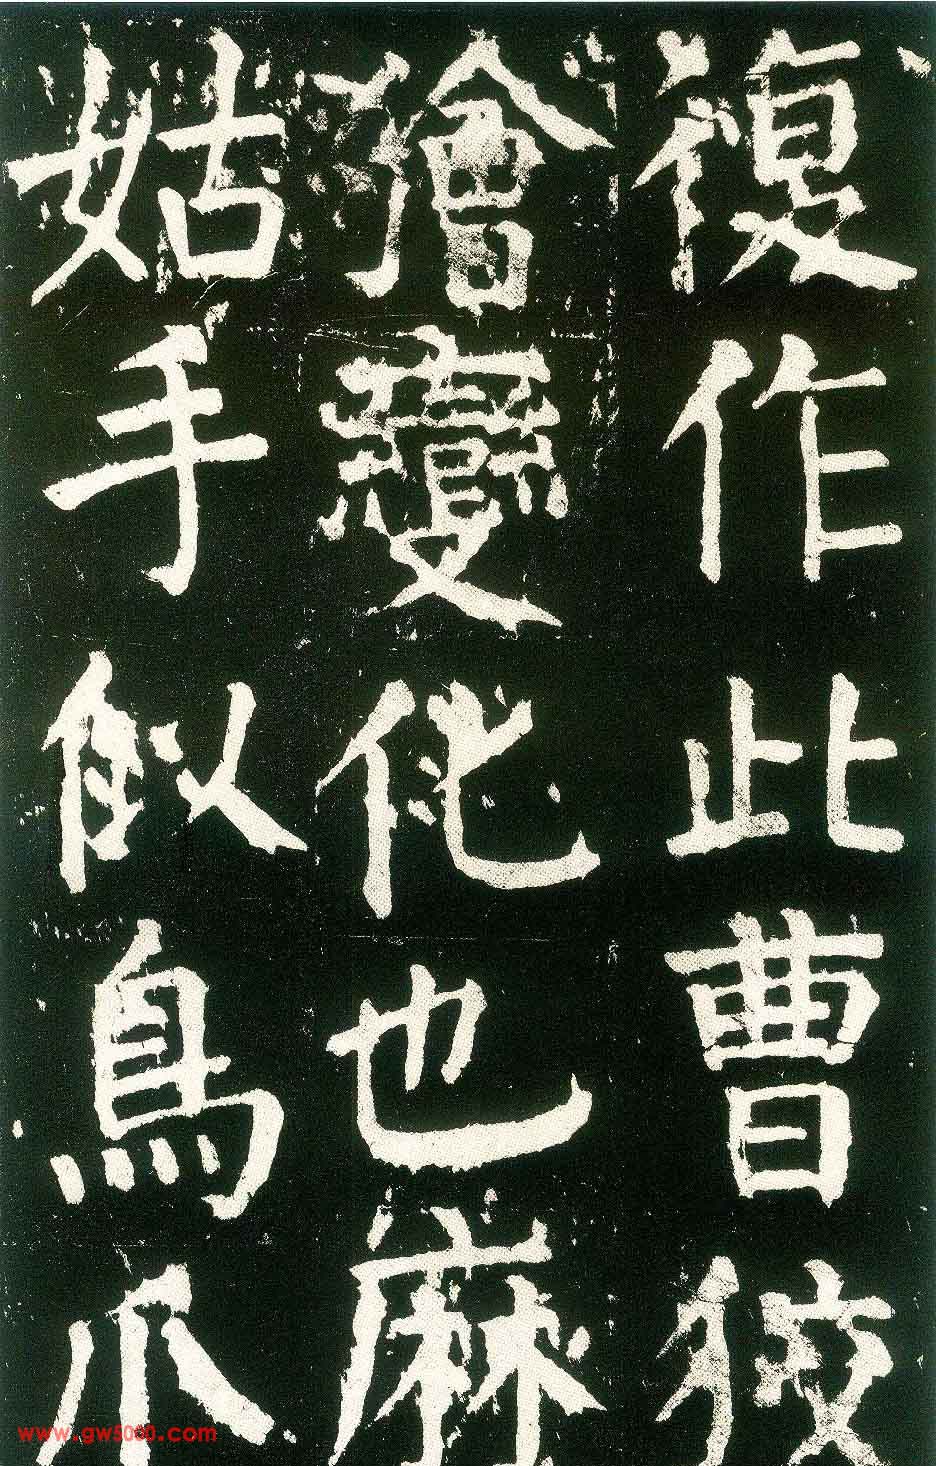 復作此曹狡
獪變化也麻
姑手似鳥爪
www.gw5000.com